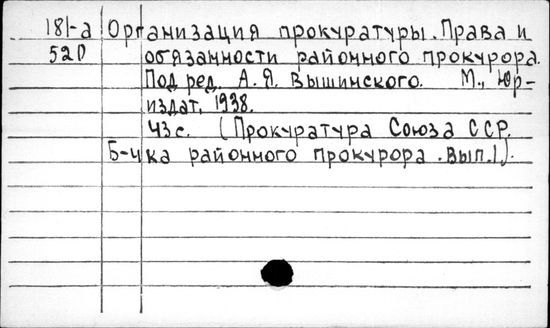 181-а Организация прокуратуры. Права и
520 обязанности районного прокурора.
Под ред. А.Я. Вышинского. М., Юр-
издат, 1938.
43 с. (Прокуратура Союза ССР.
Б-чка районного прокурора. Вып.1).